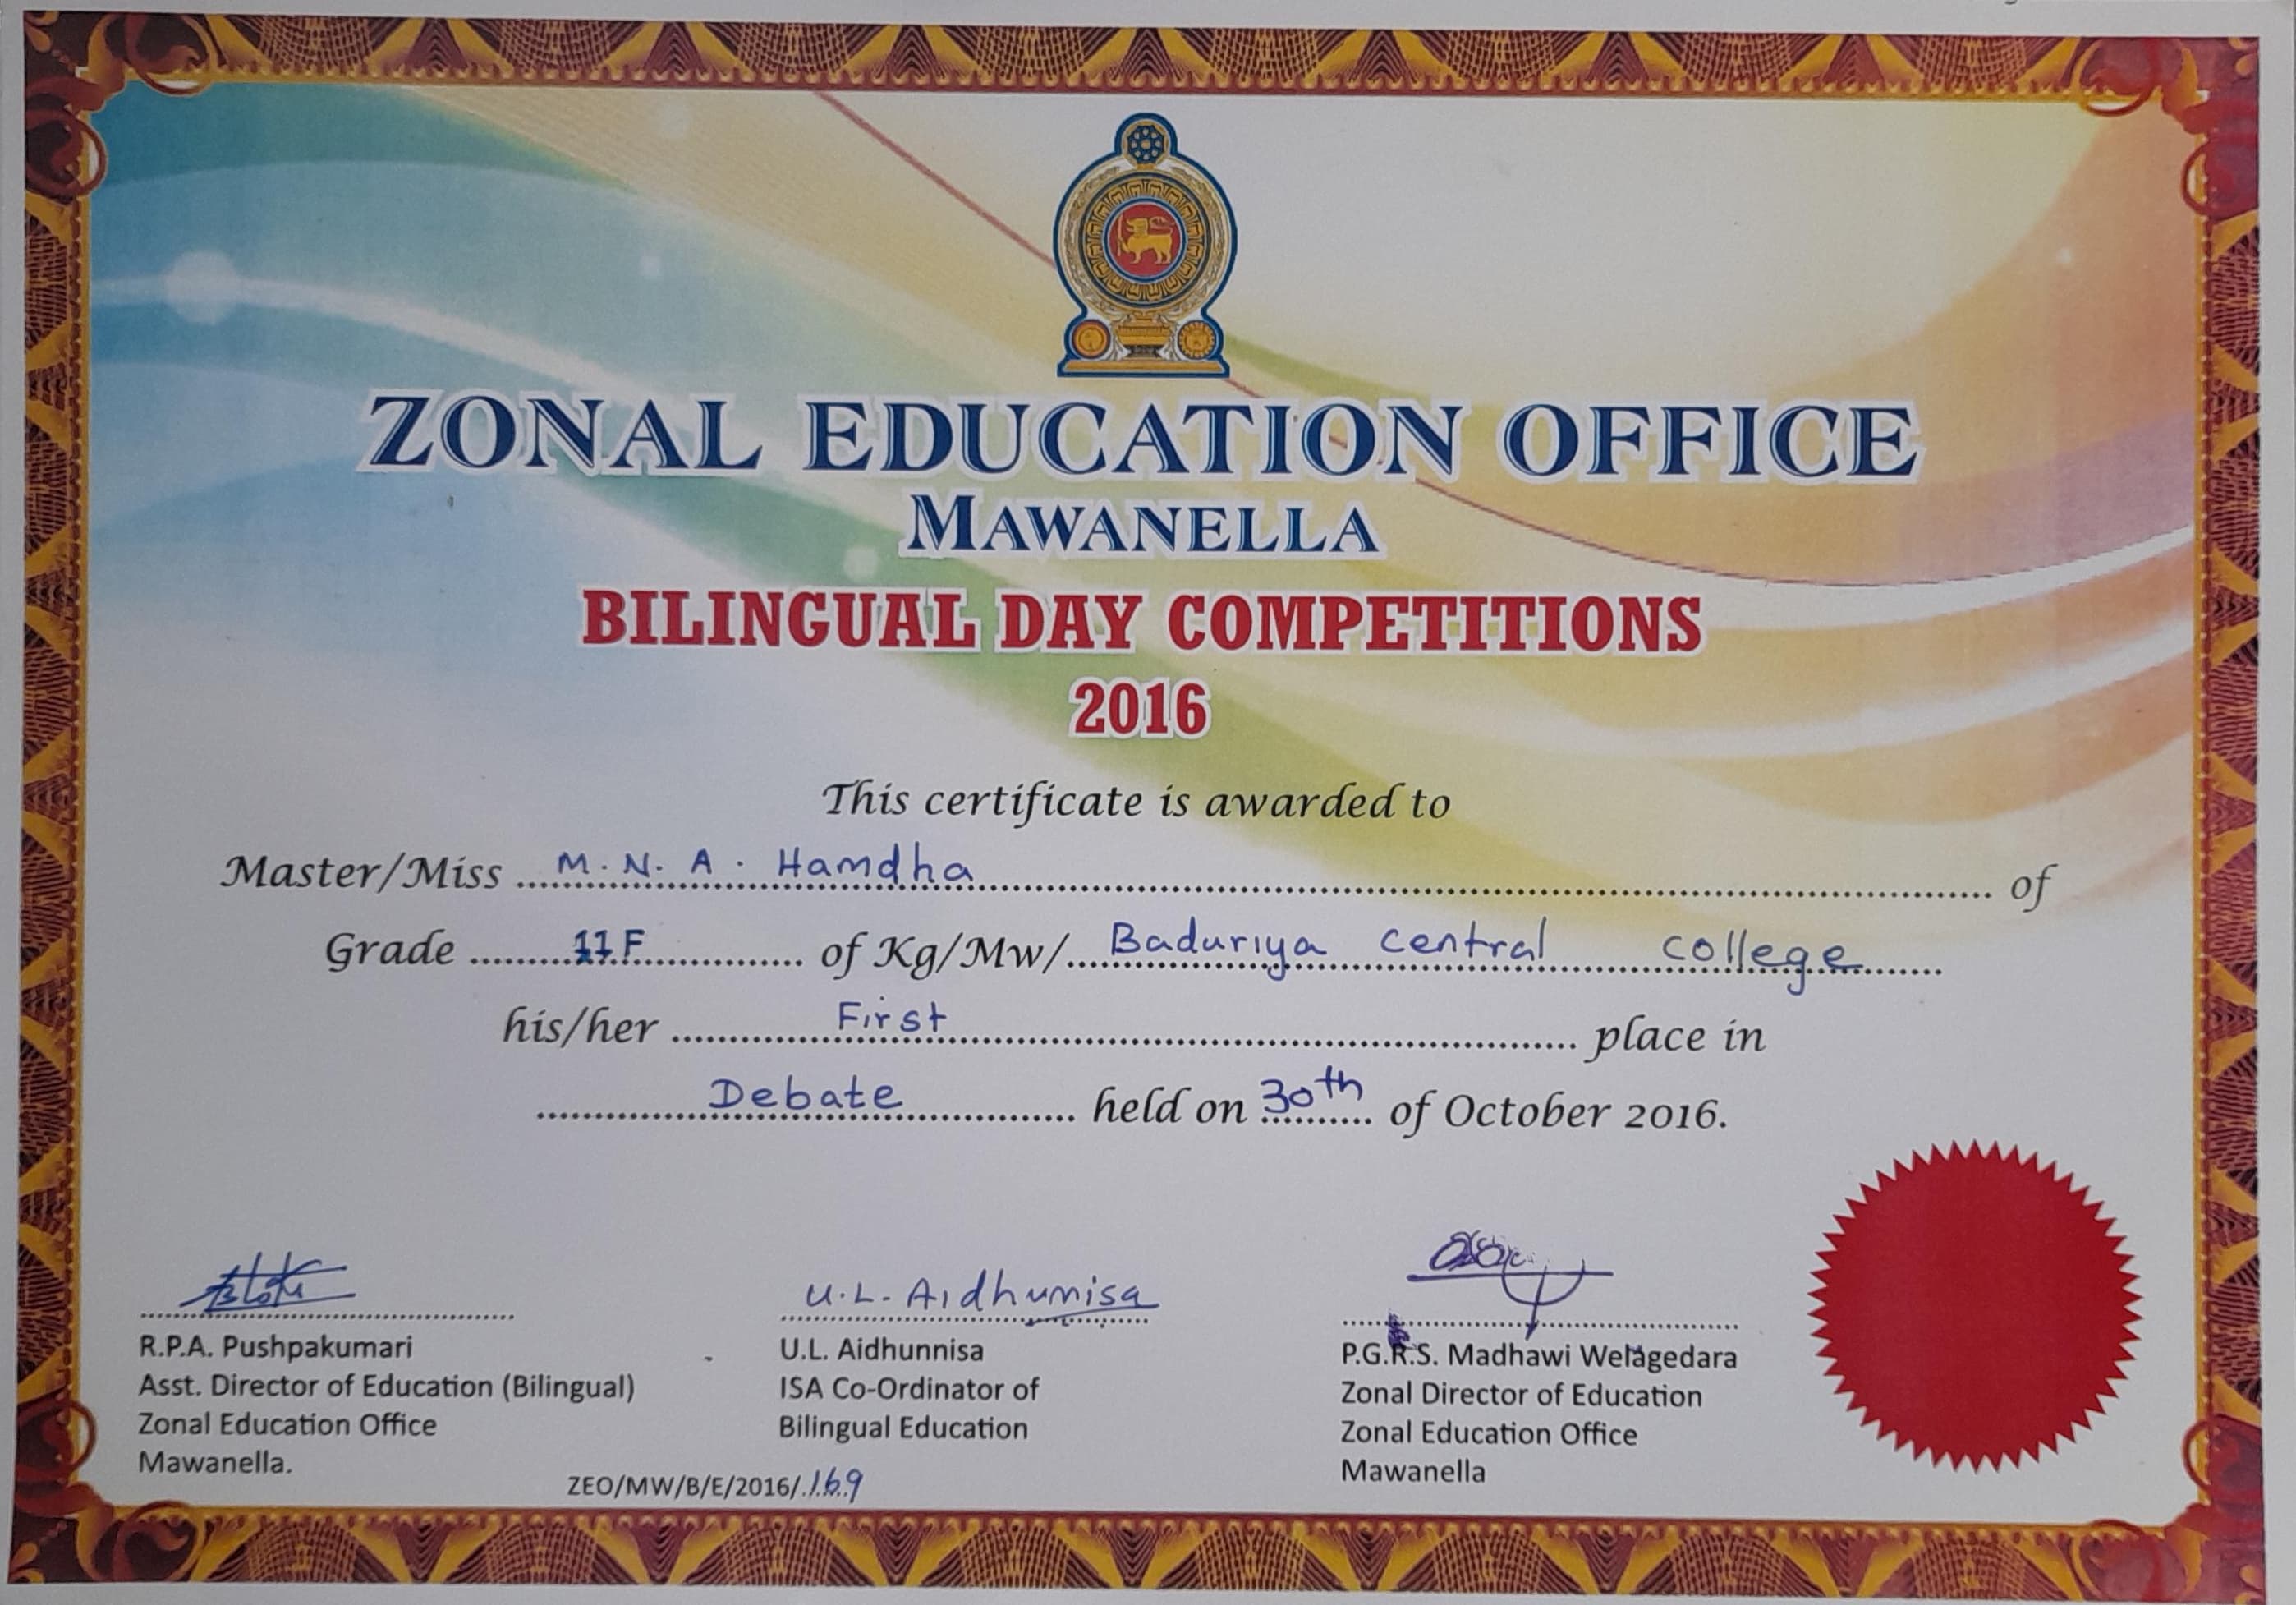 ZONAL EDUCATION OFFICE
MAWANELLA
BILINGUAL DAY COMPETITIONS
2016
This certificate is awarded to
Master/Miss M. N. A. Hamdha of
Grade 11F of Kg/Mw/ Baduriya central college
his/her First place in
Debate held on 30th of October 2016.
U.L. Aidhunnisa
R.P.A. Pushpakumari
Asst. Director of Education (Bilingual)
Zonal Education Office
Mawanella.
U.L. Aidhunnisa
ISA Co-Ordinator of
Bilingual Education
P.G.R.S. Madhawi Welagedara
Zonal Director of Education
Zonal Education Office
Mawanella
ZEO/MW/B/E/2016/.169